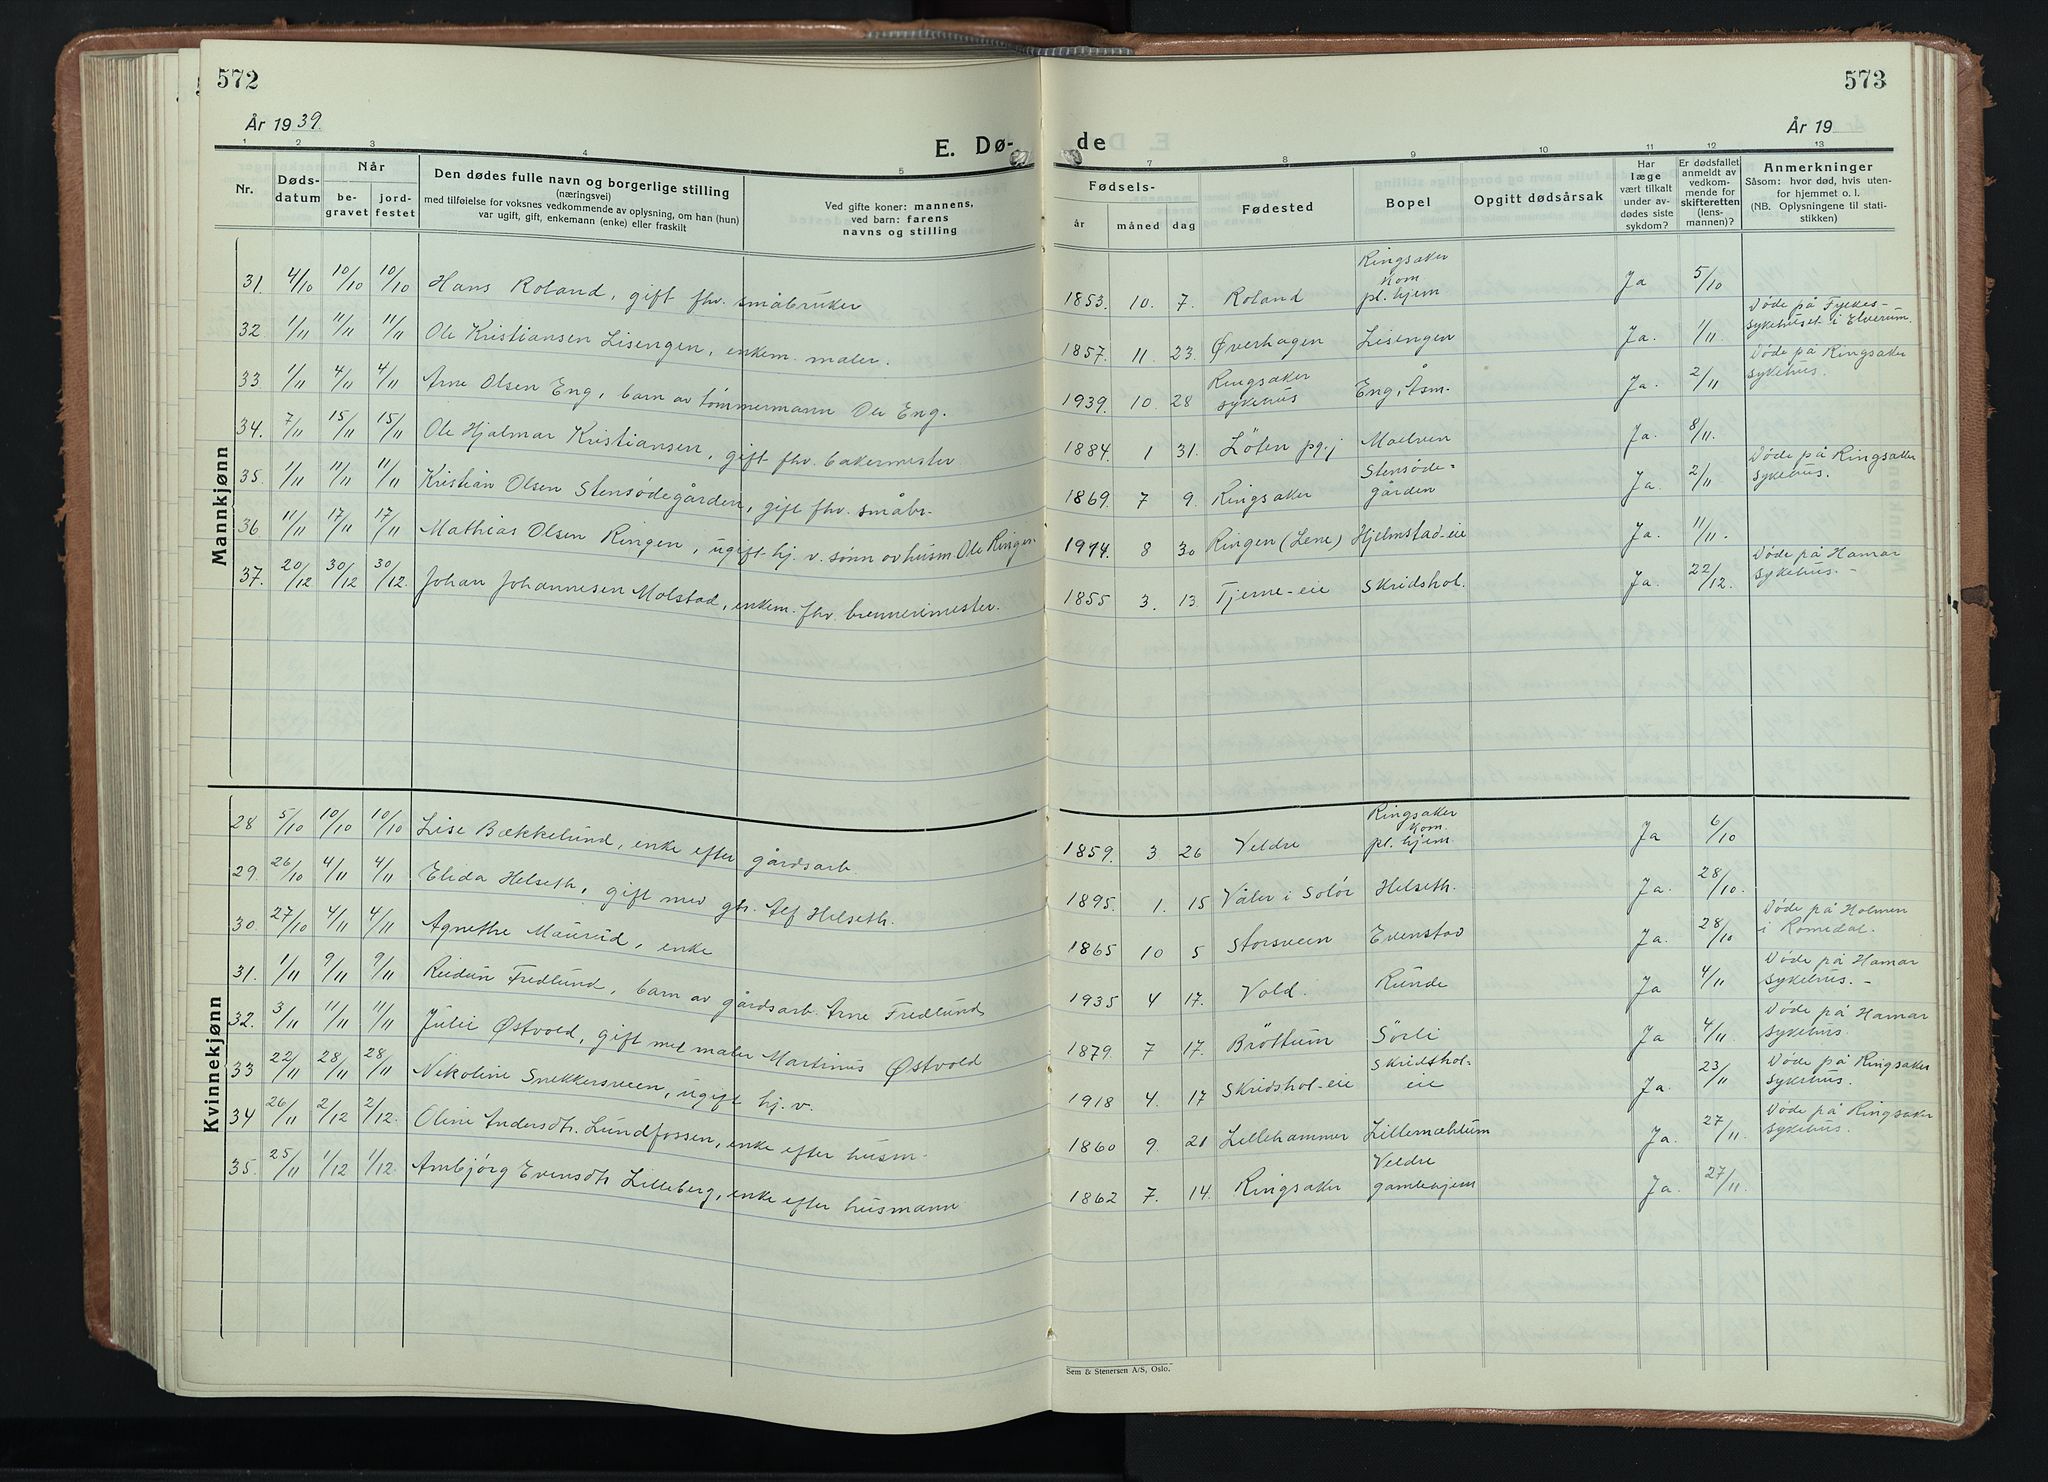 572
År 1939.
E. Dø-
1 2 3 4 5
Nr.
Døds-
datum
Når
be-
gravet
jord-
festet
Den dødes fulle navn og borgerlige stilling
(næringsvei)
med tilføielse for voksnes vedkommende av oplysning, om han (hun)
var ugift, gift, enkemann (enke) eller fraskilt
Ved gifte koner: mannens,
ved barn: farens
navns og stilling
Mannkjønn
31. 4/10 10/10 10/10 Hans Roland, gift fhv. småbruker
32 1/11 11/11 11/11 Ole Kristiansen Lisengen, enkem. maler.
33 1/11 4/11 4/11 Arne Olsen Eng, barn av tømmermann Ole Eng.
34. 7/11 15/11 15/11 Ole Hjalmar Kristiansen, gift fhv. bakermester
35. 1/11 11/11 11/11 Kristian Olsen Stensødegården, gift fhv. småbr.
36 11/11 17/11 17/11 Mathias Olsen Ringen, ugift hj. v. sønn av husm. Ole Ringen
37. 20/12 30/12 30/12. Johan Johannesen Molstad, enkem. fhv. brennerimester.
Kvinnekjønn
28 5/10 10/10 10/10 Lise Bækkelund, enke efter gårdsarb.
29. 26/10 4/11 4/11 Elida Helseth, gift med gbr. Alf Helseth.
30. 27/10 4/11 4/11 Agnethe Maurud, enke
31. 1/11 9/11 9/11 Reidun Fredlund, barn av gårdsarb. Arne Fredlund
32. 3/11 11/11 11/11 Julie Østvold, gift med maler Martinus Østvold
33 22/11 28/11 28/11 Nikoline Snekkersveen, ugift hj. v.
34 26/11 2/12 2/12. Oline Andersdtr. Lundfossen, enke efter husm.
35. 25/11 1/12 1/12. Ambjørg Evensdtr Lilleberg, enke efter husmann
573
År 19
de
7 8 9 10 11 12 13
Fødsels-
år måned dag
Fødested
Bopel
Opgitt dødsårsak
Har
læge
vært tilkalt
under av-
dødes siste
sykdom?
Er dødsfallet
anmeldt av
vedkom-
mende for
skifteretten
(lens-
mannen)?
Anmerkninger
Såsom: hvor død, hvis uten-
for hjemmet o. l.
(NB. Oplysningene til stati-
stikken)
1853. 10. 7. Roland Ringsaker kom. pl. hjem Ja 5/10
1857. 11. 23. Øverhagen Lisengen Ja. 1/11. Døde på Fylkes-
sykehuset i Elverum.
1939. 10 28 Ringsaker sykehus Eng, Åsm. Ja. 2/11 Døde på Ringsaker
sykehus.
1884. 1 31. Løten pgj Moelven Ja. 8/11.
1869 7 9. Ringsaker Stensøde-
gården Ja. 2/11 Døde på Ringsaker
sykehus.
1914. 8 30 Ringen (Lene) Hjelmstad-eie Ja. 11/11.
1855 3. 13. Tjerne-eie Skridshol. Ja. 22/12. Døde på Hamar
sykehus. -
1859. 3 26 Veldre Ringsaker kom. pl. hjem Ja 6/10
1895. 1. 15 Våler i Solør Helseth. Ja. 28/10.
1865 10 5 Storsveen Evenstad Ja. 28/10 Døde på Holmen
i Romedal.
1935 4 17. Vold. Runde Ja 4/11 Døde på Hamar
sykehus. -
1879. 7 17. Brøttum Sørli Ja 4/11. Døde på Hamar
sykehus.
1918 4. 17 Skridshol-eie Skridshol-
eie Ja. 23/11 Døde på Ringsaker
sykehus.
1860 9 21 Lillehammer Lillemæhlum Ja. 27/11. Døde på Ringsaker
sykehus.
1862 7. 14. Ringsaker Veldre
gamlehjem Ja. 27/11.
Sem & Stenersen A/S, Oslo.